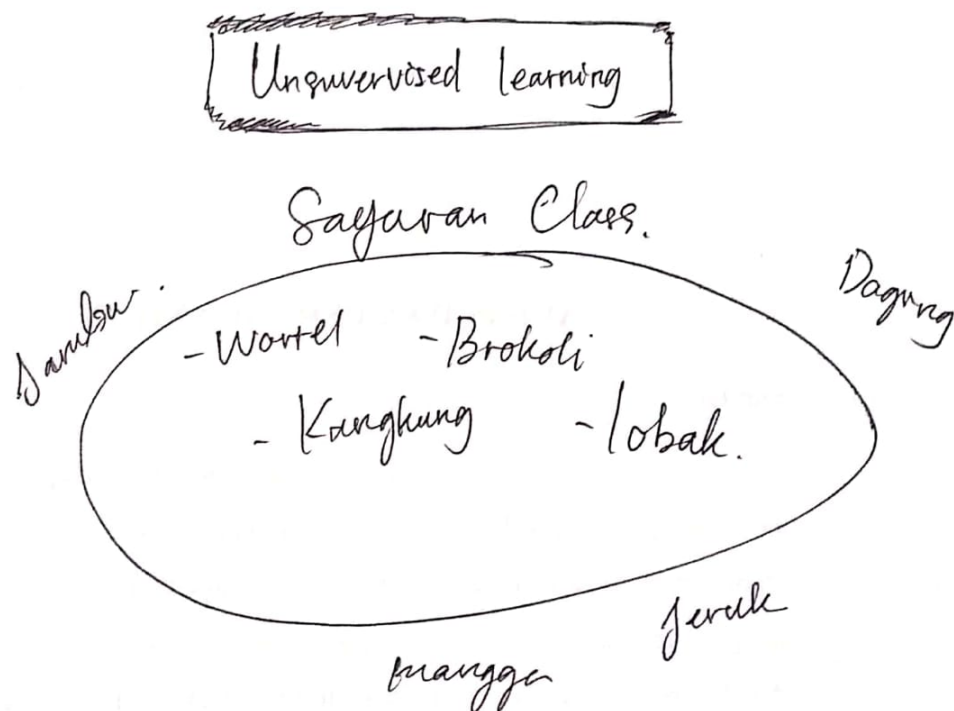 Unsuvervised learning
Sayuran Class.
Jambu.
Dagung
- Wortel
- Brokoli
- Kangkung
- lobak.
Jeruk
mangga